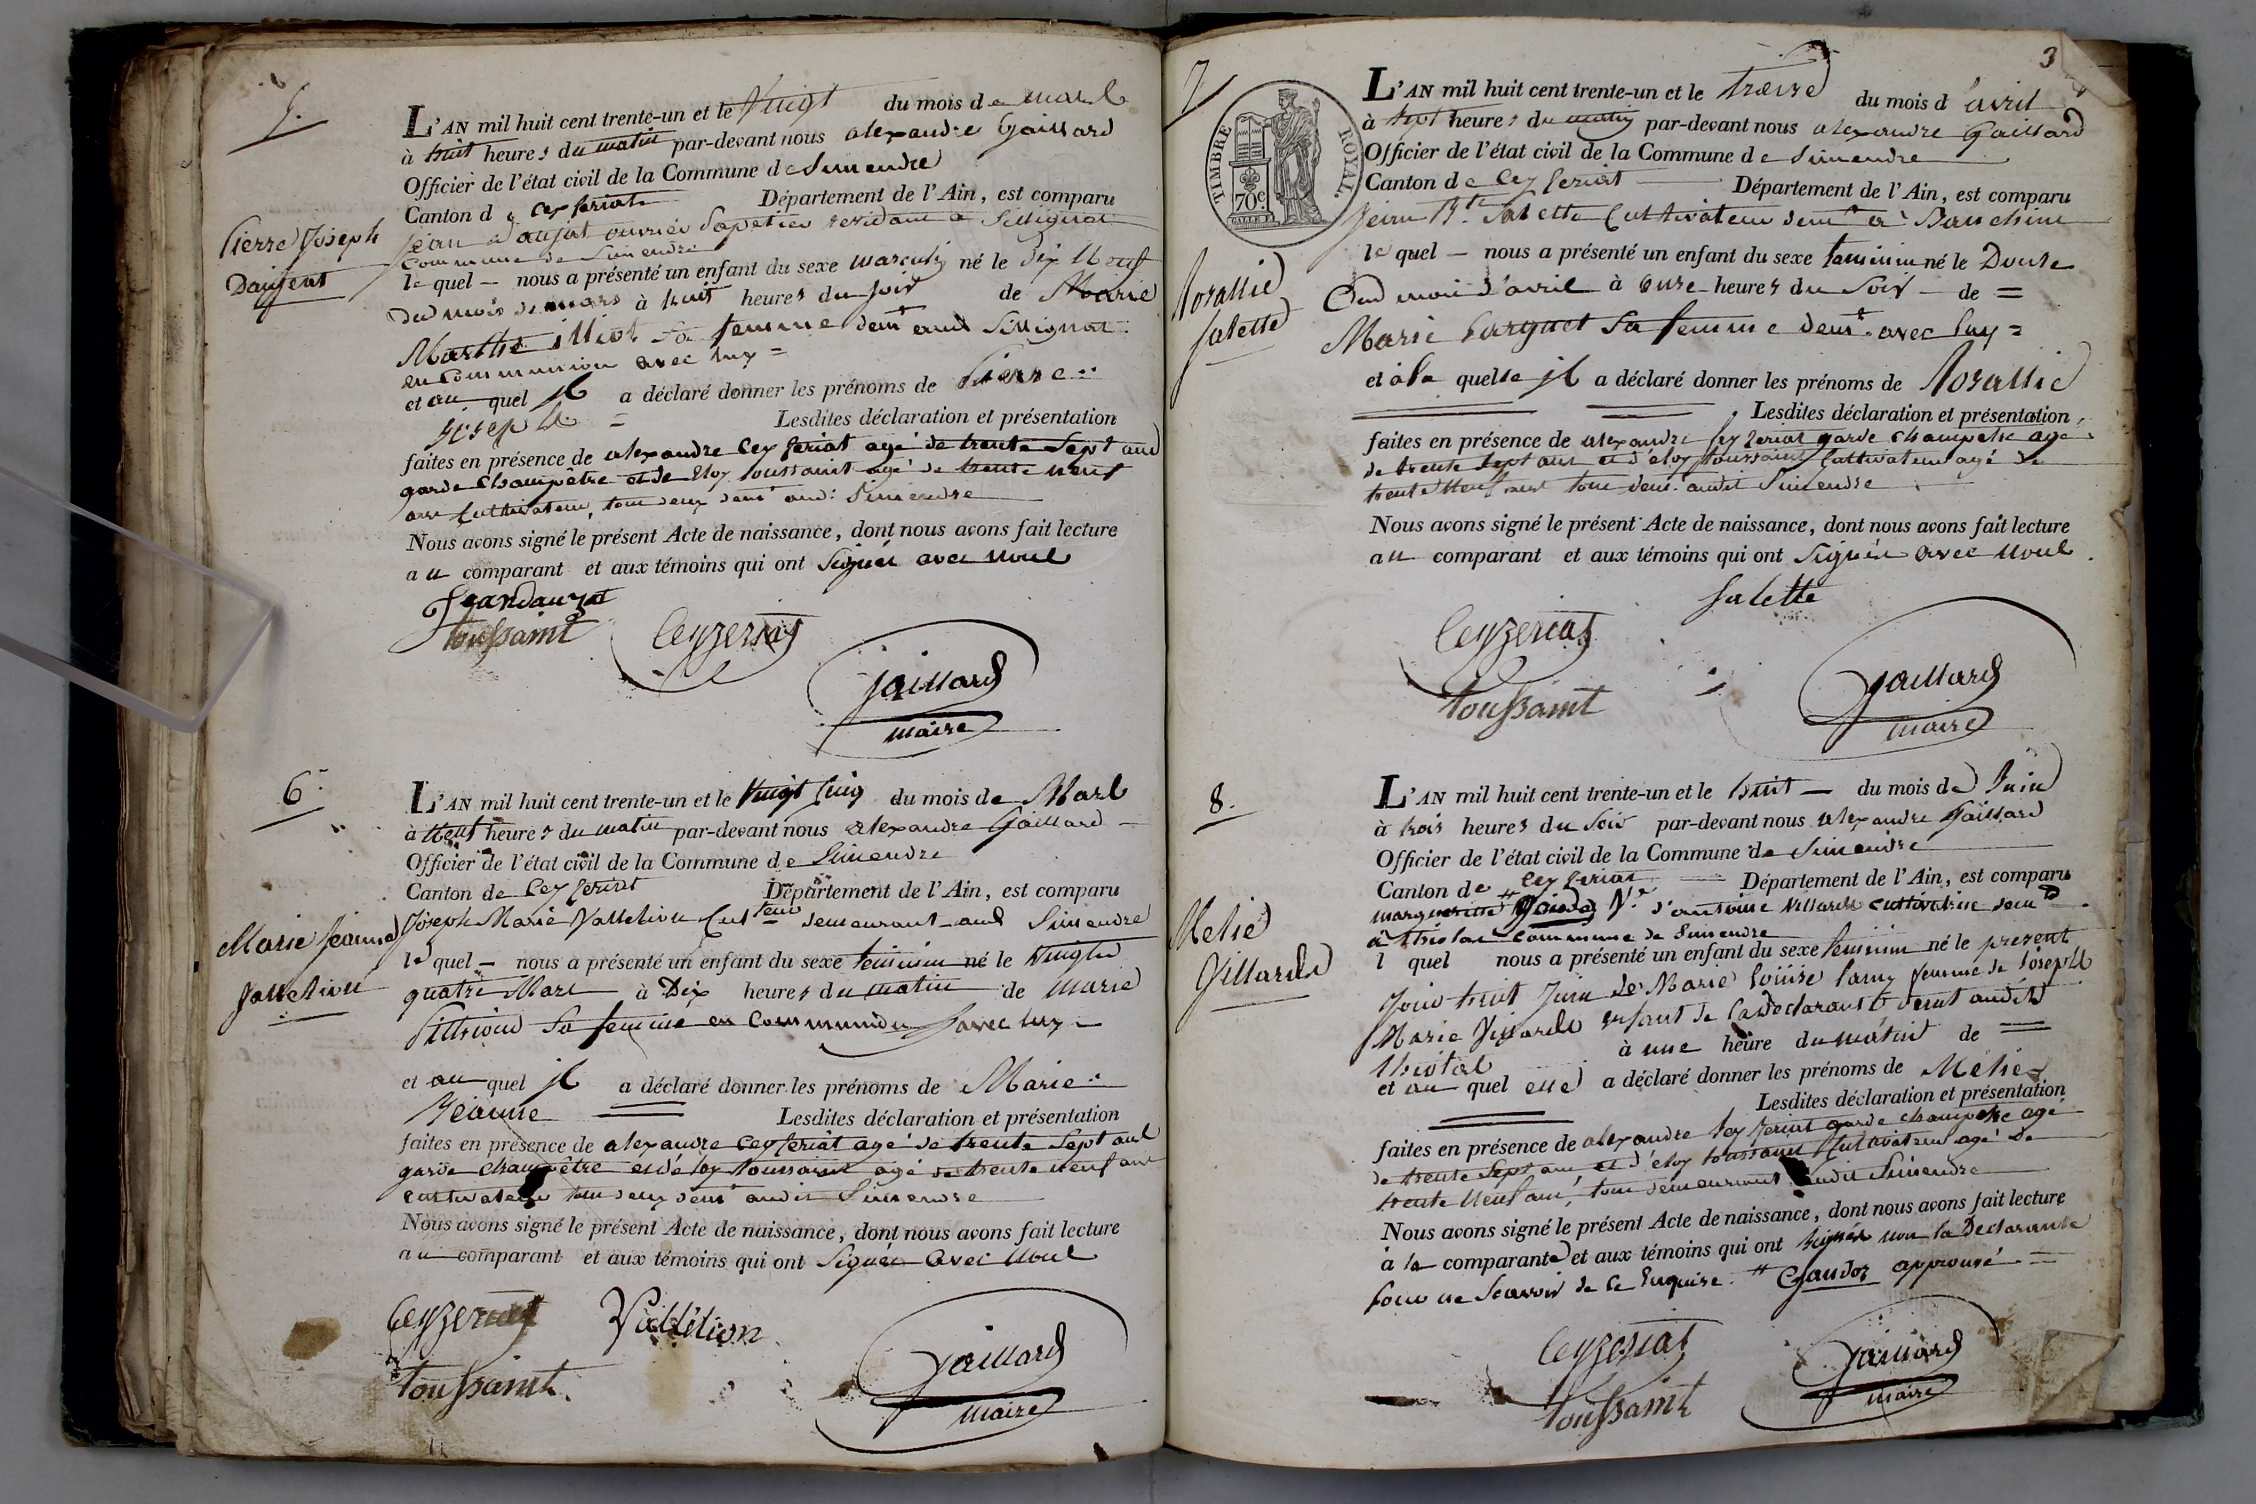 5.
L'AN mil huit cent trente-un et le Vingt du mois de mars
à huit heures du matin par-devant nous alexandre Gaillard
Officier de l'état civil de la Commune de Simandre
Canton de Ceyzeriat Département de l'Ain, est comparu
Jean Daujat ouvrier papetier residant a Sillignat
Commune de Simandre
Pierre Joseph
Daujeat
lequel – nous a présenté un enfant du sexe masculin né le dix Neuf
du mois de mars à huit heures du soir de Marie
Marthe sa femme demt aud Sillignat
en Communion avec luy =
et au quel il a déclaré donner les prénoms de Pierre
Joseph = Lesdites déclaration et présentation
faites en présence de alexandre Ceyzeriat agé de trente Sept ans
garde Champêtre et de Eloy toussaint agé de trente neuf
ans Cultivateur, tous deux demt audi Simendre
Nous avons signé le présent Acte de naissance, dont nous avons fait lecture
au comparant et aux témoins qui ont Signés avec nous
Jean daujat
toussaint Ceyzeriat
gaillard
maire
6.
L'AN mil huit cent trente-un et le Vingt Cinq du mois de Mars
à Neuf heures du matin par-devant nous alexandre Gaillard
Officier de l'état civil de la Commune de Simendre
Canton de Ceyzeriat Département de l'Ain, est comparu
Joseph Marie Valletion Culteur demeurant aud Simendre
Marie Jeanne
Valletion
lequel – nous a présenté un enfant du sexe feminin né le Vingt
quatre Mars à Dix heures du matin de Marie
sa femme en Communion avec luy
et au quel il a déclaré donner les prénoms de Marie
Jeanne = Lesdites déclaration et présentation
faites en présence de alexandre Ceyzeriat agé de trente Sept ans
garde champêtre et d'éloy toussaint agé de trente neuf ans
cultivateur tous deux demt audit Simendre
Nous avons signé le présent Acte de naissance, dont nous avons fait lecture
au comparant et aux témoins qui ont Signés avec nous
Ceyzeriat Vallétion
toussaint
gaillard
maire
3
7
TIMBRE ROYAL
70c.
L'AN mil huit cent trente-un et le treize du mois d'avril
à sept heures du matin par-devant nous alexandre Gaillard
Officier de l'état civil de la Commune de Simendre
Canton de Ceyzeriat Département de l'Ain, est comparu
Jean Bte Salette Cultivateur demt a Banchin
Rosallie
Salette
lequel – nous a présenté un enfant du sexe feminin né le Douze
Dud mois d'avril à onze heures du Soir de =
Marie sa femme demt avec luy =
et à la quelle il a déclaré donner les prénoms de Rosallie
Lesdites déclaration et présentation
faites en présence de alexandre Ceyzeriat garde champetre agé
de trente Sept ans et d'eloy toussaint Cultivateur agé de
trente Neuf ans tous deux audit Simendre
Nous avons signé le présent Acte de naissance, dont nous avons fait lecture
au comparant et aux témoins qui ont Signés avec nous
Salette
Ceyzeriat
toussaint
gaillard
maire
8.
L'AN mil huit cent trente-un et le huit – du mois de Juin
à trois heures du Soir par-devant nous alexandre Gaillard
Officier de l'état civil de la Commune de Simendre
Canton de Ceyzeriat Département de l'Ain, est comparu
margueritte Gandoz Ve d'antoine Villards cultivatrice demt
à Commune de Simendre
Melie
Villards
l quel nous a présenté un enfant du sexe feminin né le present
Jour huit Juin de Marie louise lamy femme de Joseph
Marie Villards enfant de la declarante demt audit
à une heure du matin de =
et au quel elle a déclaré donner les prénoms de Mélie
Lesdites déclaration et présentation
faites en présence de alexandre Ceyzeriat garde champetre agé
de trente Sept ans et d'eloy toussaint Cultivateur agé de
trente Neuf ans, tous demeurant audit Simendre
Nous avons signé le présent Acte de naissance, dont nous avons fait lecture
à la comparante et aux témoins qui ont signés non la Declarante
pour ne Scavoir de ce Enquise. # Gandoz approuvé =
Ceyzeriat
toussaint
gaillard
maire